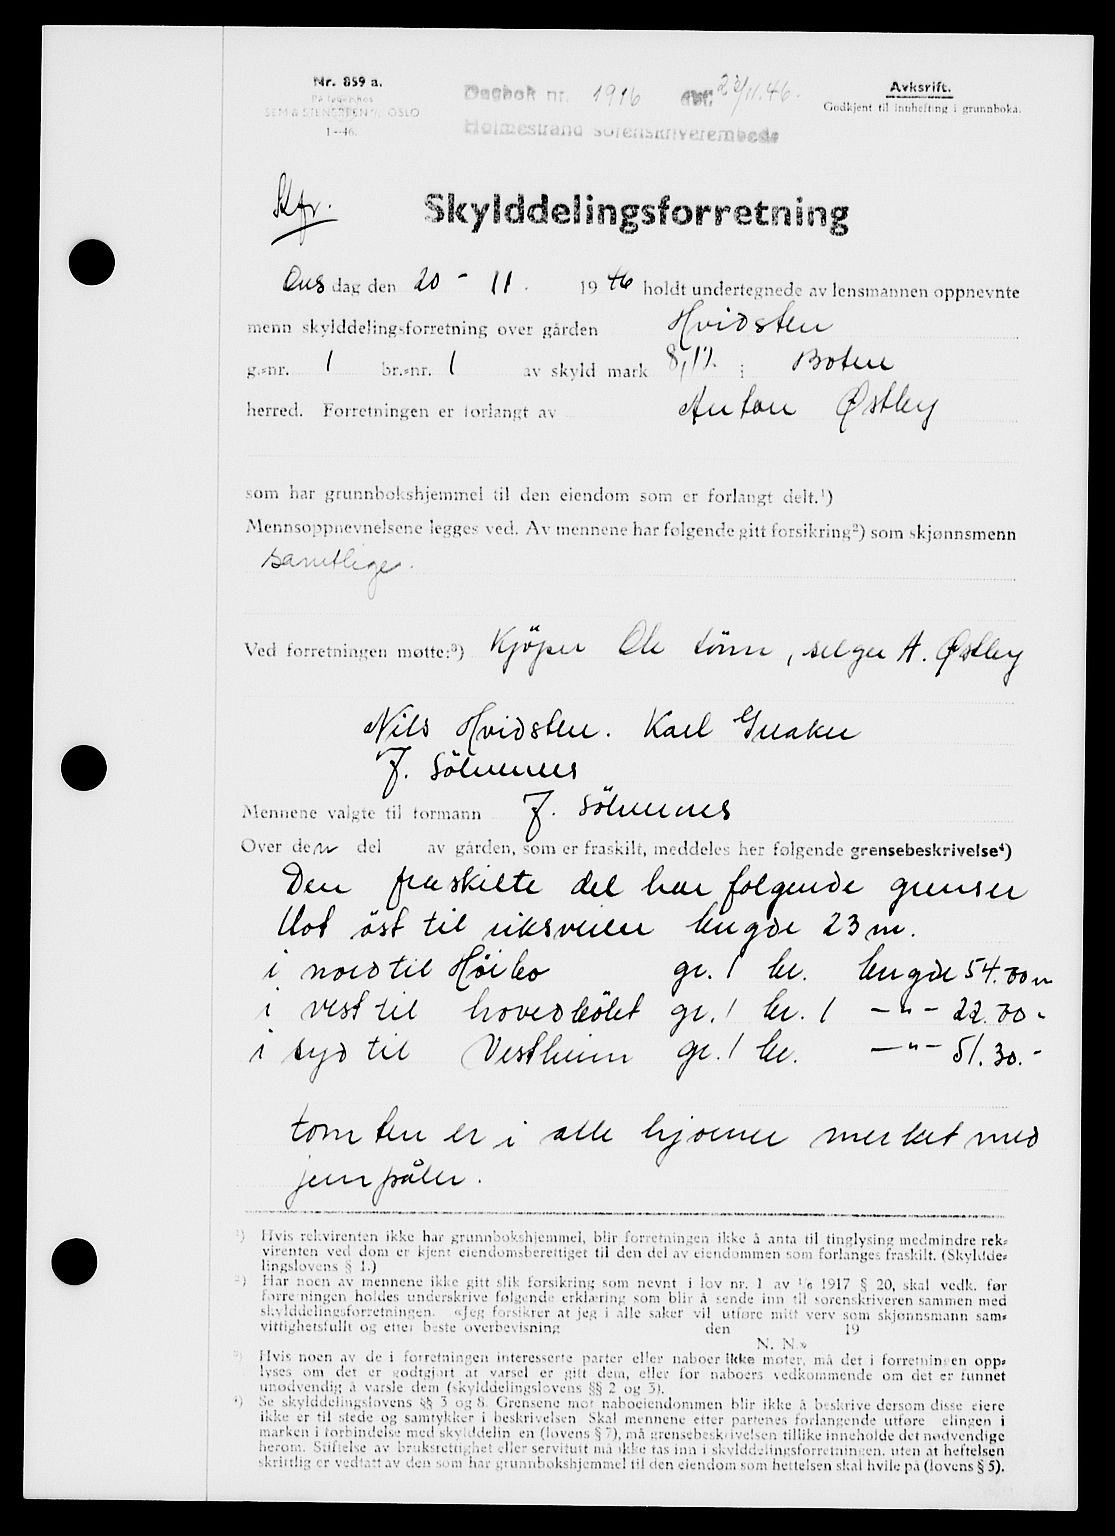 Nr. 859 a.
På lager hos
SEM & STENERSEN A/S OSLO
1-46.
Dagbok nr. 1916 avt. 23/11.46.
Holmestrand sorenskriverembede
Avksrift.
Godkjent til innhefting i grunnboka.
Skfr.
Skylddelingsforretning
Onsdag den 20 - 11. 1946 holdt undertegnede av lensmannen oppnevnte
menn skylddelingsforretning over gården Hvidsten
g.-nr. 1 br.-nr. 1 av skyld mark 8,17. i Botne
herred. Forretningen er forlangt av Anton Østby
som har grunnbokshjemmel til den eiendom som er forlangt delt.¹)
Mennsoppnevnelsene legges ved. Av mennene har følgende gitt forsikring²) som skjønnsmenn
samtlige.
Ved forretningen møtte:³) Kjöper Ole Lönn, selger A. Østby
Nils Hvidsten. Karl Greaker
F. Sölvernes
Mennene valgte til formann F. Sölvernes
Over den del av gården, som er fraskilt, meddeles her følgende grensebeskrivelse⁴)
Den fraskilte del har følgende grenser
Mot öst til riksveien lengde 23 m.
i nord til Höibo gr. 1 br. lengde 54.00 m
i vest til hovedbölet gr. 1 br. 1 -"- 22.70 -
i syd til Vestheim gr. 1 br. -"- 51.30.-
Tomten er i alle hjørner merket med
jernpåler.
¹) Hvis rekvirenten ikke har grunnbokshjemmel, blir forretningen ikke å anta til tinglysing medmindre rek-
virenten ved dom er kjent eiendomsberettiget til den del av eiendommen som forlanges fraskilt. (Skyldde-
lingslovens § 1.)
²) Har noen av mennene ikke gitt slik forsikring som nevnt i lov nr. 1 av ¹/₆ 1917 § 20, skal vedk. før
forretningen holdes underskrive følgende erklæring som blir å sende inn til sorenskriveren sammen med
skylddelingsforretningen. «Jeg forsikrer at jeg i alle saker vil utføre mitt verv som skjønnsmann sam-
vittighetsfullt og etter beste overbevisning den 19
N. N.»
³) Hvis noen av de i forretningen interesserte parter eller naboer ikke møter, må det i forretningen opp-
lyses om det er godtgjort at varsel er gitt dem, eller for naboers vedkommende om det er funnet
unødvendig å varsle dem (skylddelingslovens §§ 2 og 3).
⁴) Se skylddelingslovens §§ 3 og 8. Grensene mot naboeiendommen blir ikke å beskrive dersom disse eiere
ikke er til stede og samtykker i beskrivelsen Skal mennene etter partenes forlangende utføre elingen i
marken i forbindelse med skylddelin en (lovens § 7), må grensebeskrivelsen tillike inneholde det nødvendige
herom. Stiftelse av bruksrettighet eller servitutt må ikke tas inn i skylddelingsforretningen, uten at heftelsen
skriftlig er vedtatt av den som har grunnbokshjemmel til den eiendom som heftelsen skal hvile på (lovens § 5).